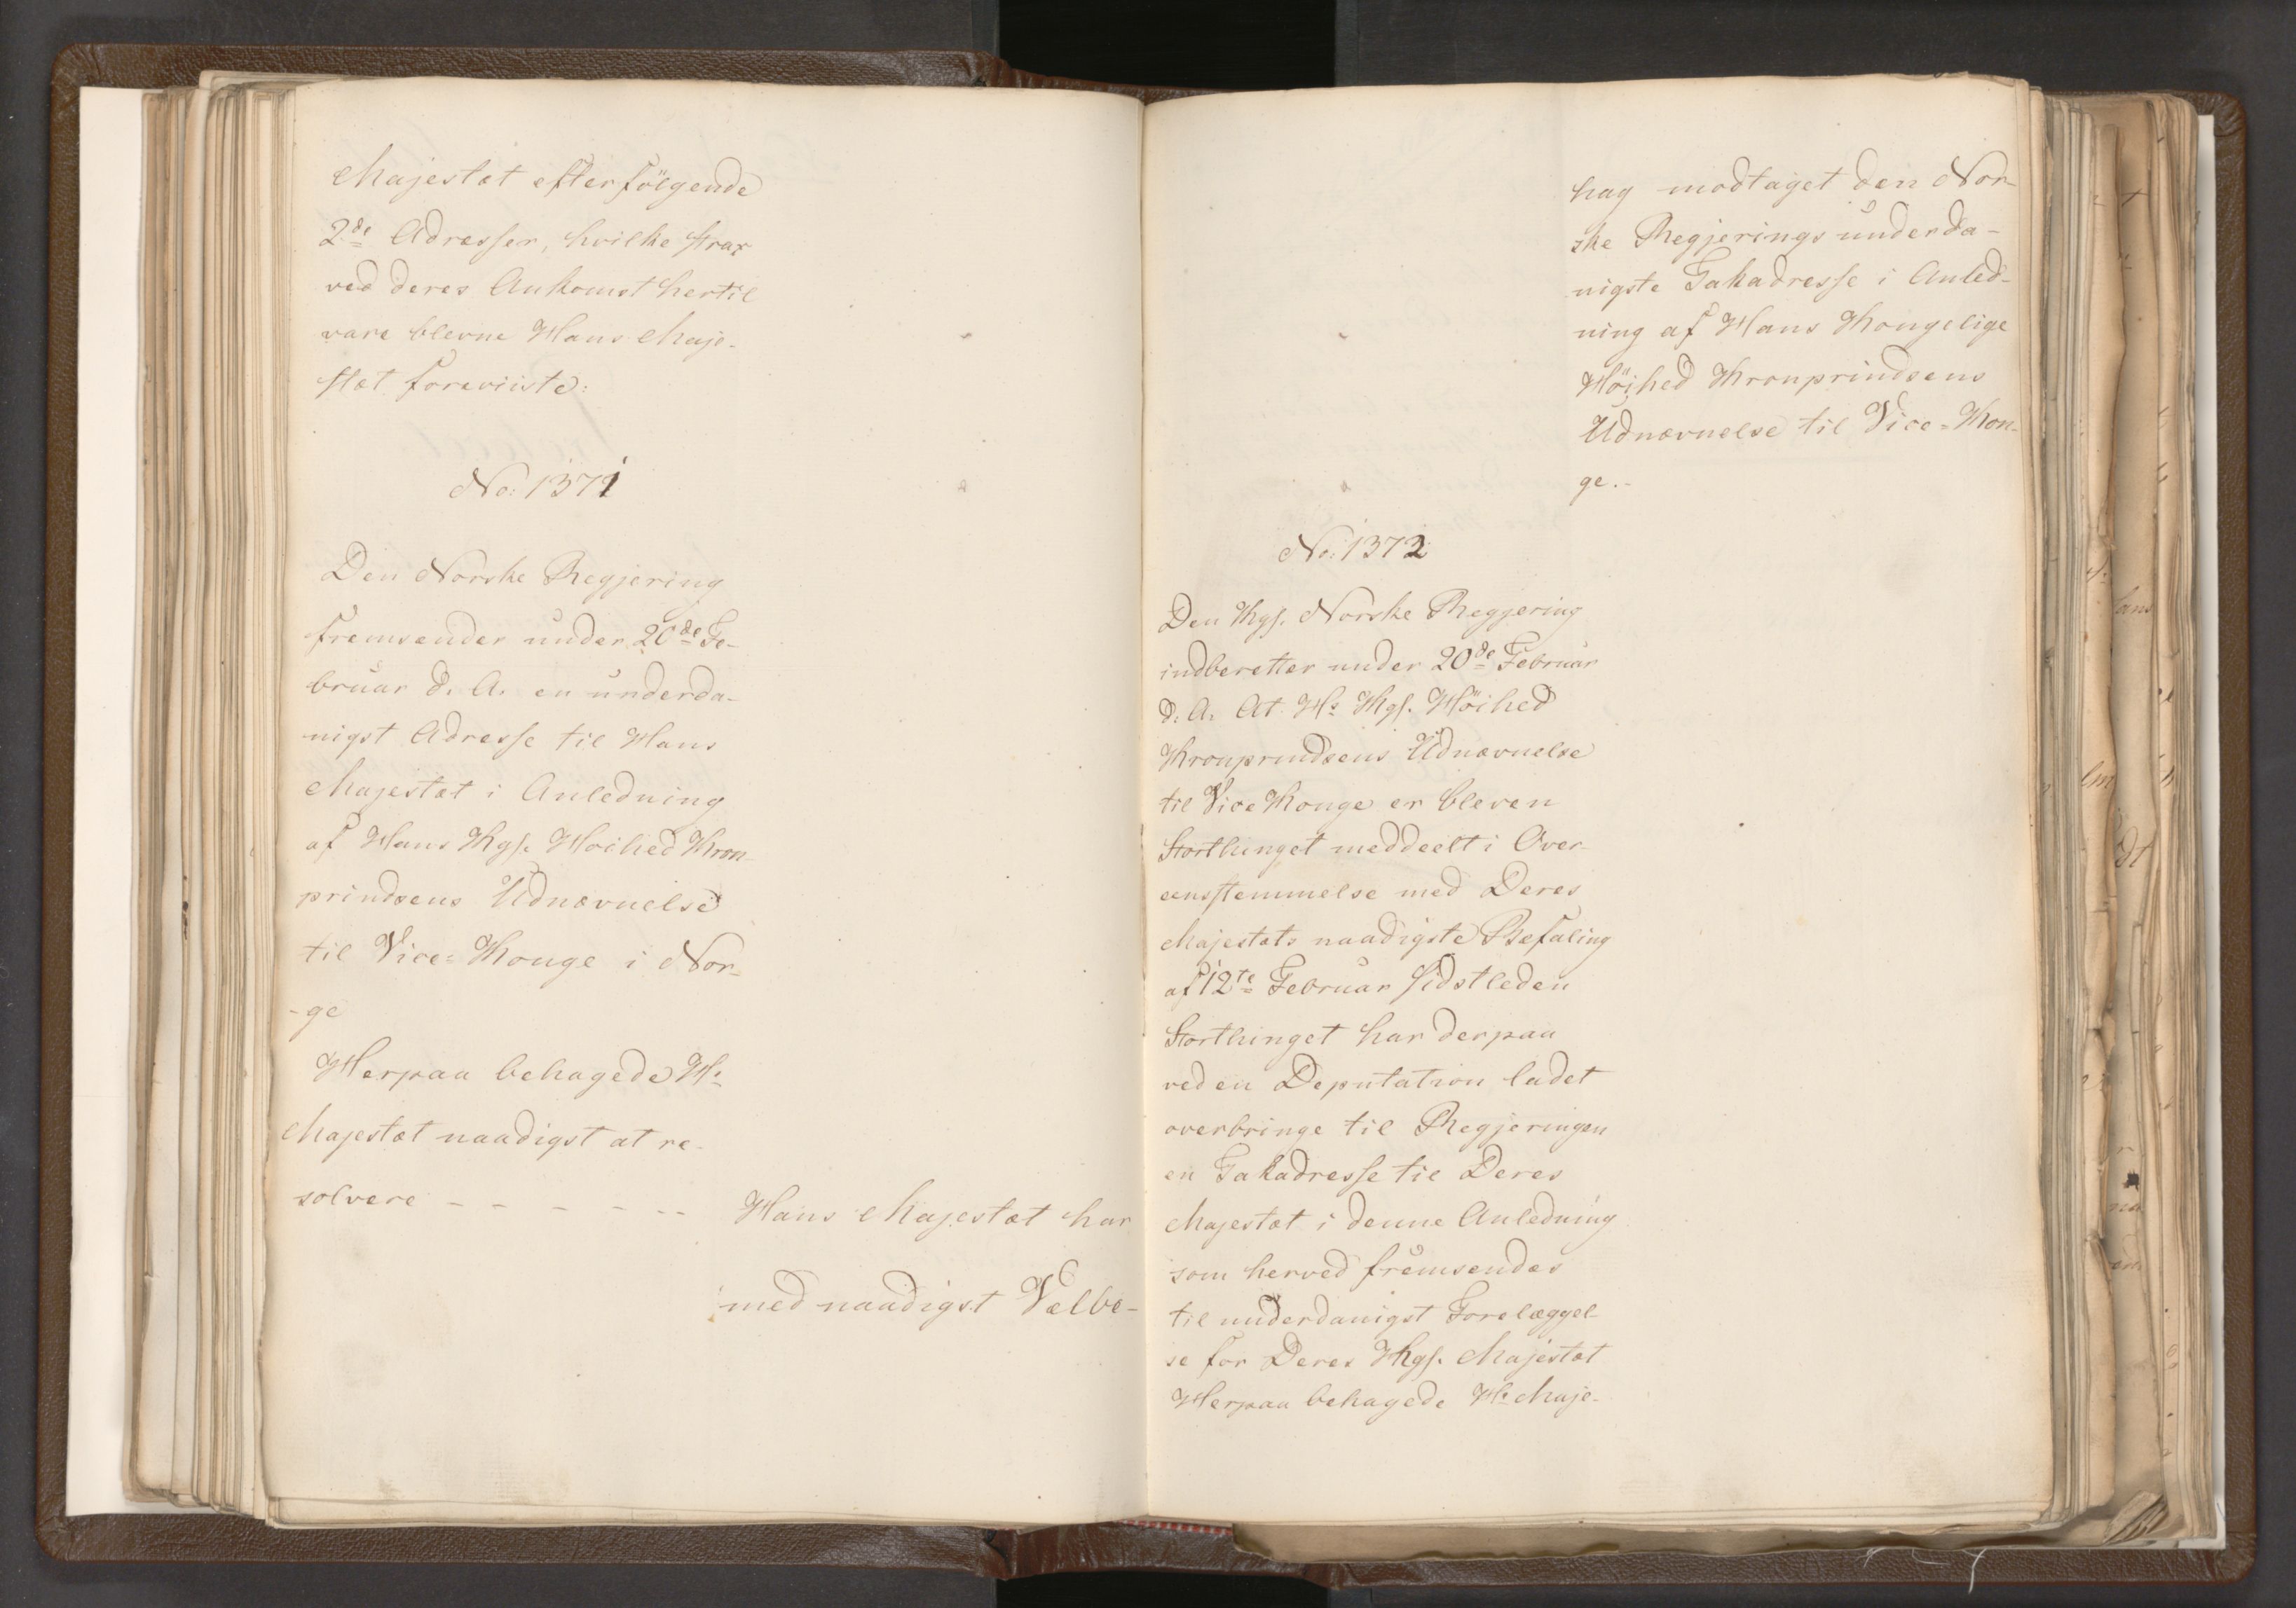 Majestæt efterfölgende
2de Adresser, hvilke strax
ved deres Ankomst hertil
vare blevne Hans Maje-
stæt foreviiste:
No: 1371
Den Norske Regjering
fremsender under 20de Fe-
bruar d. A. en underda-
nigst Adresse til Hans
Majestæt i Anledning
af Hans Kgl. Höihed Kron-
prindsens Udnævnelse
til Vice-Konge i Nor-
-ge
Herpaa behagede Hs
Majestæt naadigst at re-
solvere - - - - -
Hans Majestæt har
med naadigst Velbe-
hag modtaget den Nor-
ske Regjerings underda-
nigste Takadresse i Anled-
ning af Hans Kongelige
Höihed Kronprindsens
Udnævnelse til Vice-Kon-
ge.-
No: 1372
Den Kgl. Norske Regjering
indberetter under 20de Februar
d. A. At Hs Kgl. Höihed
Kronprindsens Udnævnelse
til Vice Konge er bleven
Storthinget meddeelt i Over-
eensstemmelse med Deres
Majestæts naadigste Befaling
af 12te Februar sidstleden
Storthinget har derpaa
ved en Deputation ladet
overbringe til Regjeringen
en Takadresse til Deres
Majestæt i denne Anledning
som herved fremsendes
til underdanigst Forelæggel-
se for Deres Kgl. Majestæt
Herpaa behagede Hs Maje-